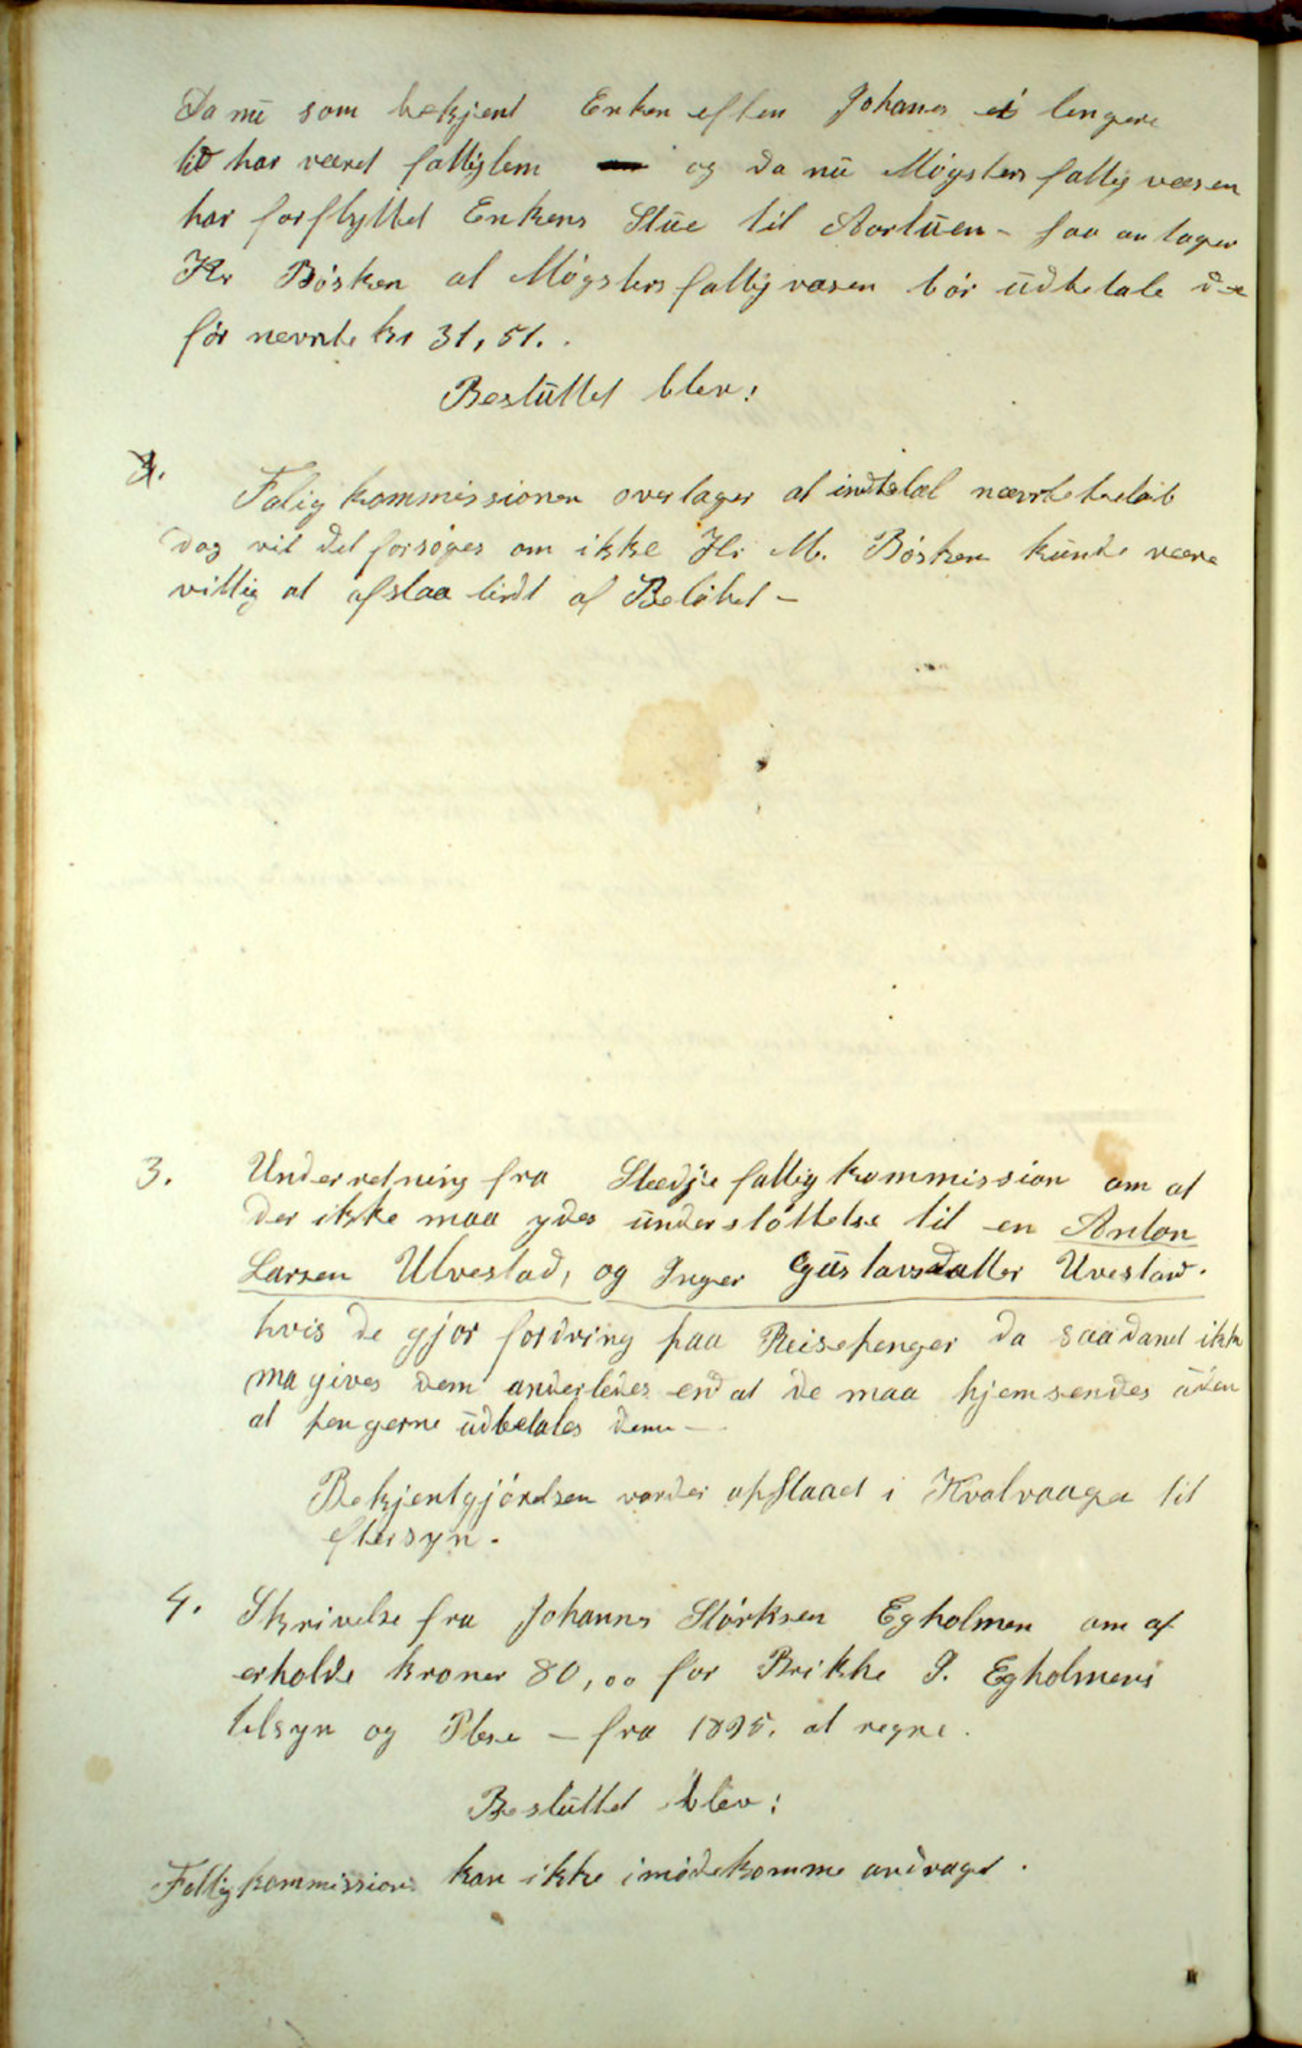 Da nu som bekjent Enken eften Johanes i lengere
tid har været fattiglem og da nu Møgsters fattig væsen
har forflyttet Enkens Stue til Aartuen - saa antager
Hr Bösken at Møgsters fattigvæsen bör udbetale de
för nevnte kr 31,51.
Besluttet blev:
Fatigkommissionen overlager at indbetal nævnte beløb
dog vil det forsøges om ikke Hr M. Bösken kunde være
villig at afslaa lidt af Beløbet -
3. Underretning fra Stedje fattigkommission om at
der ikke maa ydes understøttelse til en Anton
Larsen Ulvestad, og Inger Gustavsdatter Uvestad.
hvis de gjør fordring paa Reisepenger da saadanet ikke
ma gives dem anderledes end at de maa hjemsendes uden
at pengerne udbetales dem -
Bekjentgjørelsen vorder opslaaet i Kvalvaage til
eftersyn.
4. Skrivelse fra Johannes Störksen Egholmen om at
erholde kroner 80,00 for Brikke J. Egholmens
tilsyn og Pleie - fra 1895. at regne.
Besluttet blev:
Fattigkommission kan ikke imødekomme andraget.